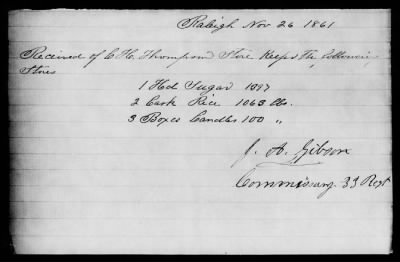 Raleigh Nov 26 1861
Received of C. H. Thompson Store Keeper The following
Stores
1 Hhd Sugar 1097
2 Cask Rice 1063 lbs.
3 Boxes Candles 100 "
J. A. Gibson
Commissary 33 Regt